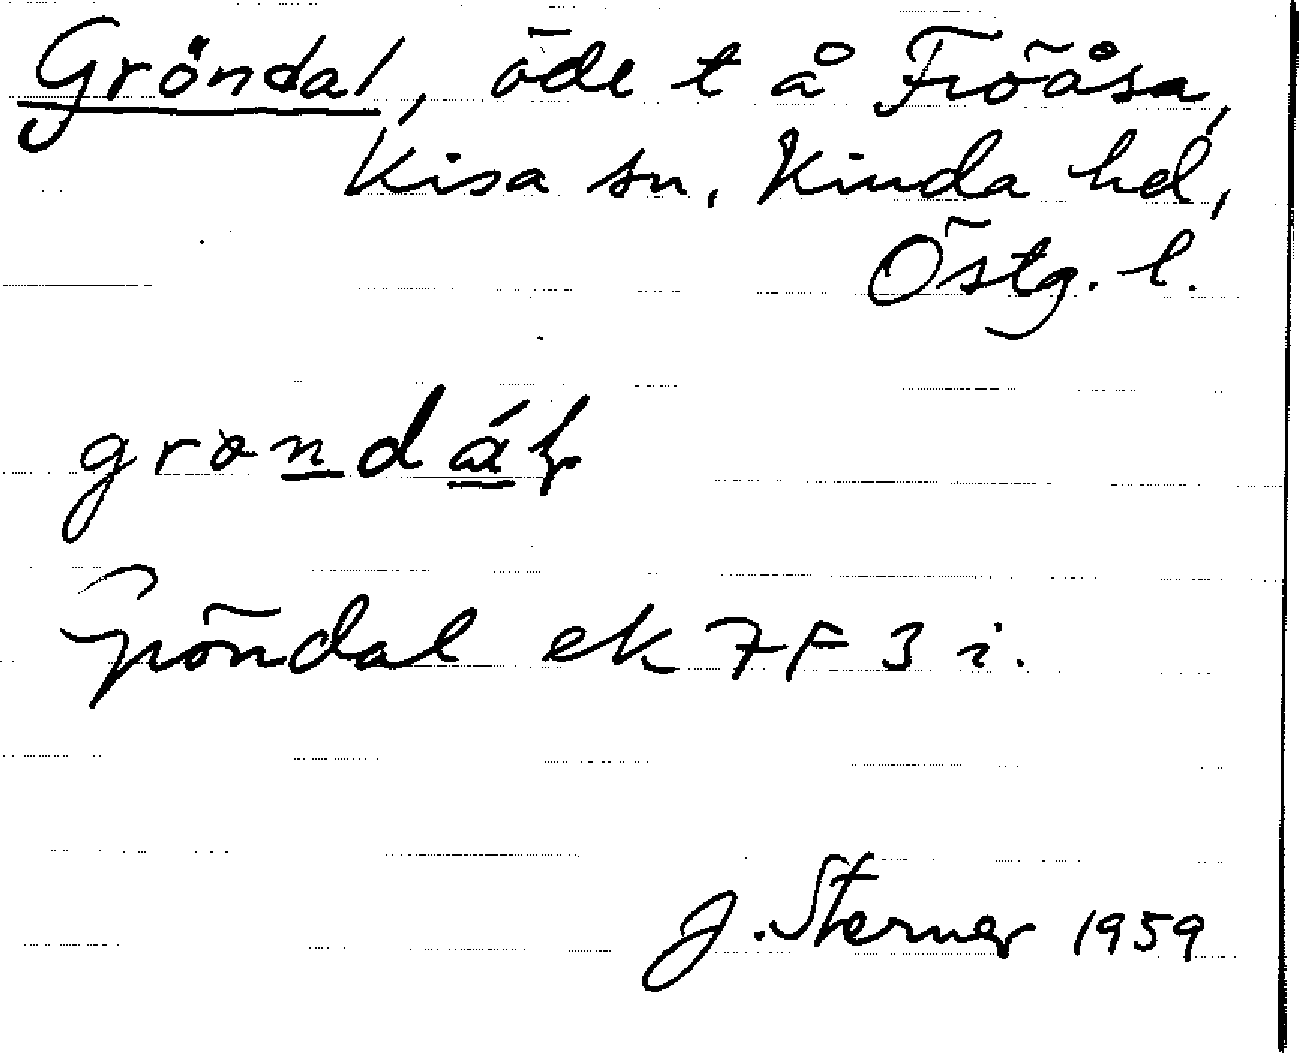 Gröndal, öde t å Fröåsa,
Kisa sn, Kinda hd,
Östg. l.
grøndáł
Gröndal ek 7F 3 i.
J. Sterner 1959